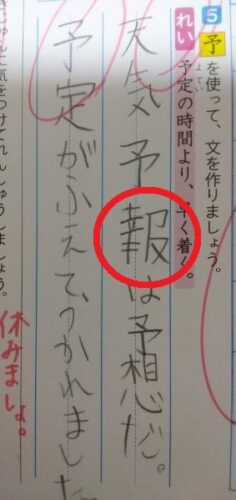 5 予を使って、文を作りましょう。
れい 予定の時間より、早く着く。
よてい
天気予報は予想だ。
予定がふえて、つかれました
休みましょ。
気をつけてれんしゅうしましょう。